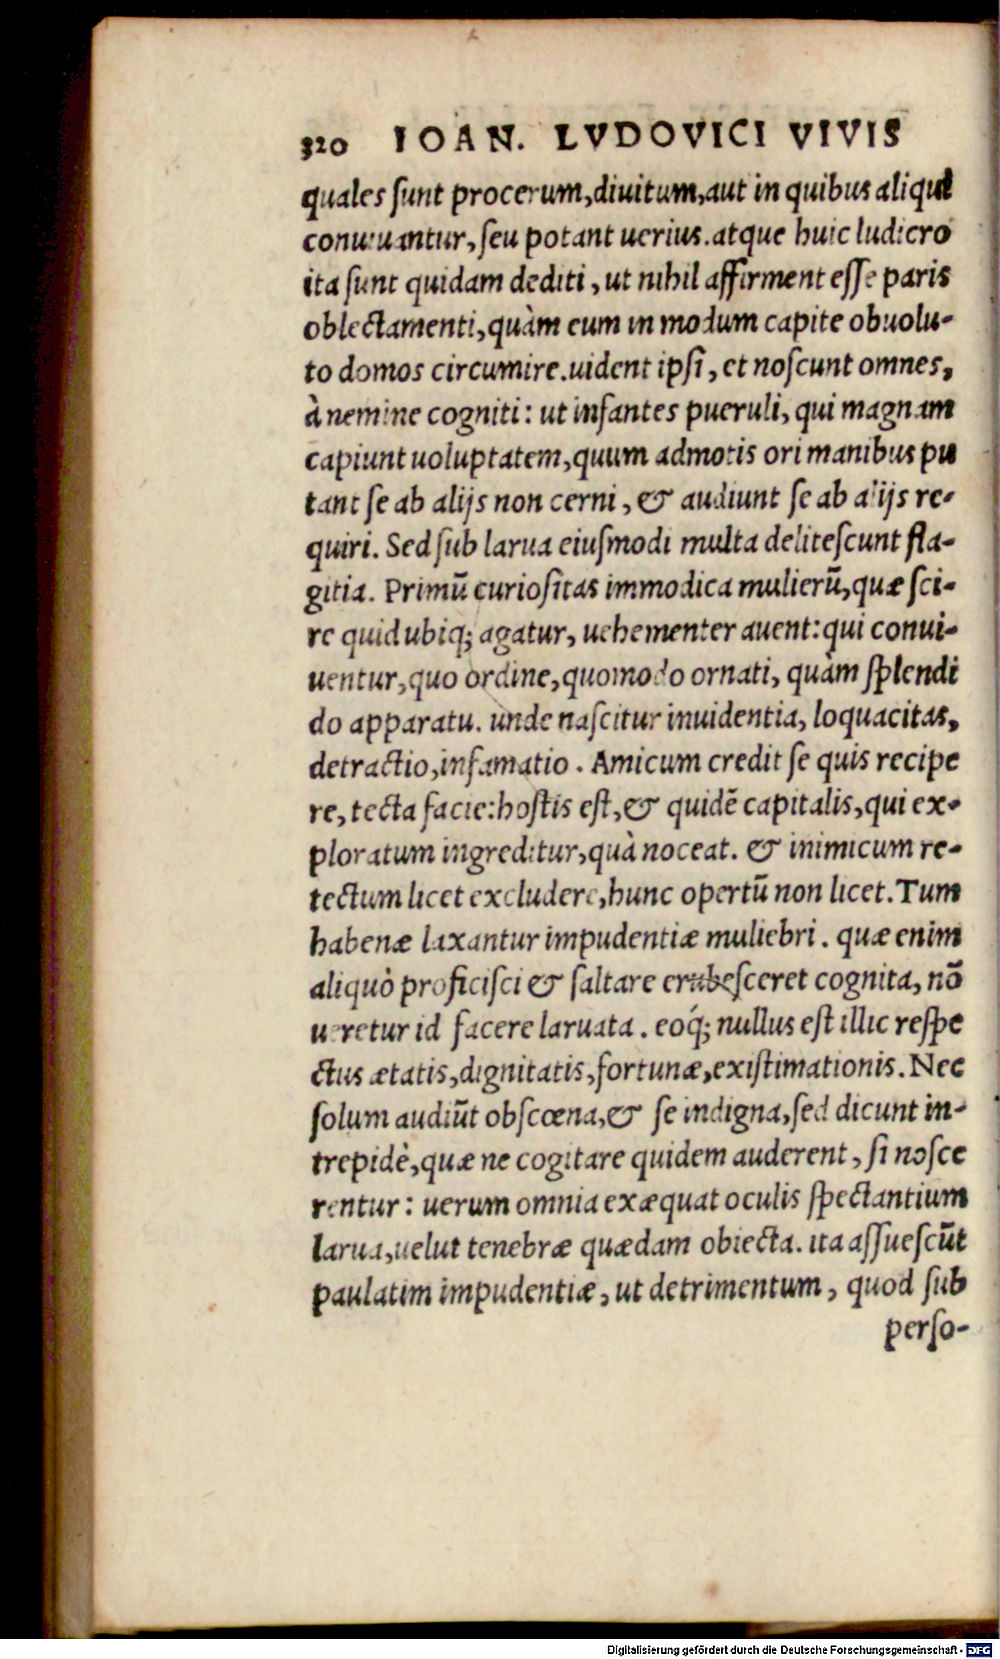 320 IOAN. LVDOVICI VIVIS
quales sunt procerum, diuitum, aut in quibus aliqui
conuiuantur, seu potant uerius. atque huic ludicro
ita sunt quidam dediti, ut nihil affirment esse paris
oblectamenti, quàm eum in modum capite obuolu-
to domos circumire. uident ipsi, et noscunt omnes,
à nemine cogniti: ut infantes pueruli, qui magnam
capiunt uoluptatem, quum admotis ori manibus pu
tant se ab alijs non cerni, & audiunt se ab alijs re-
quiri. Sed sub larua eiusmodi multa delitescunt fla-
gitia. Primū curiositas immodica mulierū, quæ sci-
re quid ubiq; agatur, uehementer auent: qui conui-
uentur, quo ordine, quomodo ornati, quàm splendi
do apparatu. unde nascitur inuidentia, loquacitas,
detractio, infamatio. Amicum credit se quis recipe
re, tecta facie: hostis est, & quidē capitalis, qui ex-
ploratum ingreditur, quà noceat. & inimicum re-
tectum licet excludere, hunc opertū non licet. Tum
habenæ laxantur impudentiæ muliebri. quæ enim
aliquò proficisci & saltare erubesceret cognita, nō
ueretur id facere laruata. eoq́; nullus est illic respe
ctus ætatis, dignitatis, fortunæ, existimationis. Nec
solum audiūt obscœna, & se indigna, sed dicunt in-
trepidè, quæ ne cogitare quidem auderent, si nosce
rentur: uerum omnia exæquat oculis spectantium
larua, uelut tenebræ quædam obiecta. ita assuescūt
paulatim impudentiæ, ut detrimentum, quod sub
perso-
Digitalisierung gefördert durch die Deutsche Forschungsgemeinschaft - DFG